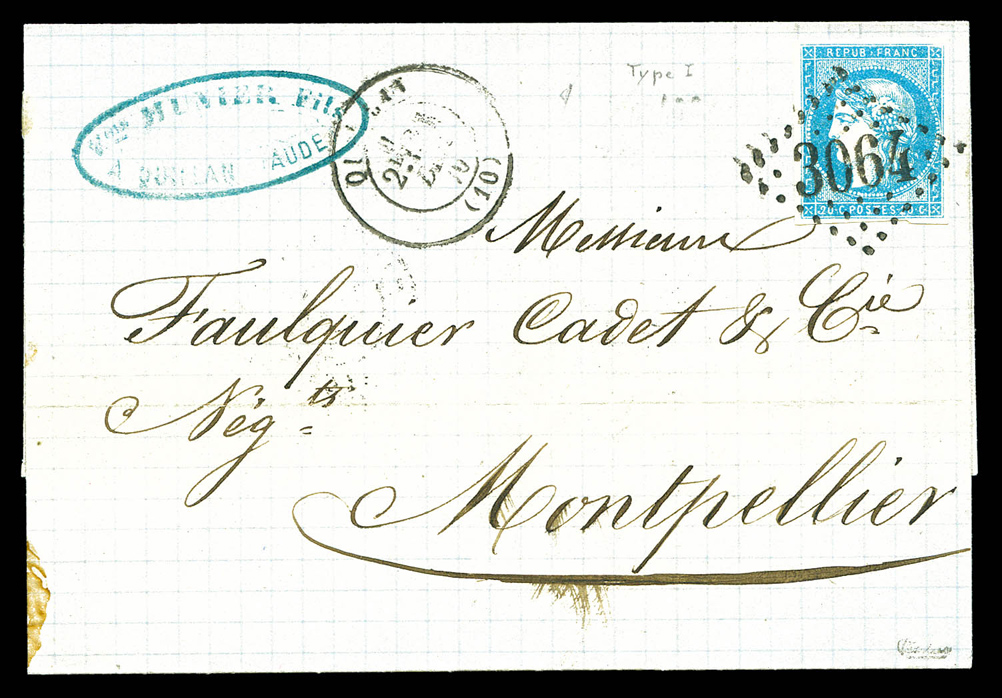 Vve MUNIER Fils
A QUILLAN AUDE
(10)
Type I
REPUB·FRANC
3064
20·C·POSTES·20·C
Messieurs
Faulquier Cadet & Cie
Négts
Montpellier